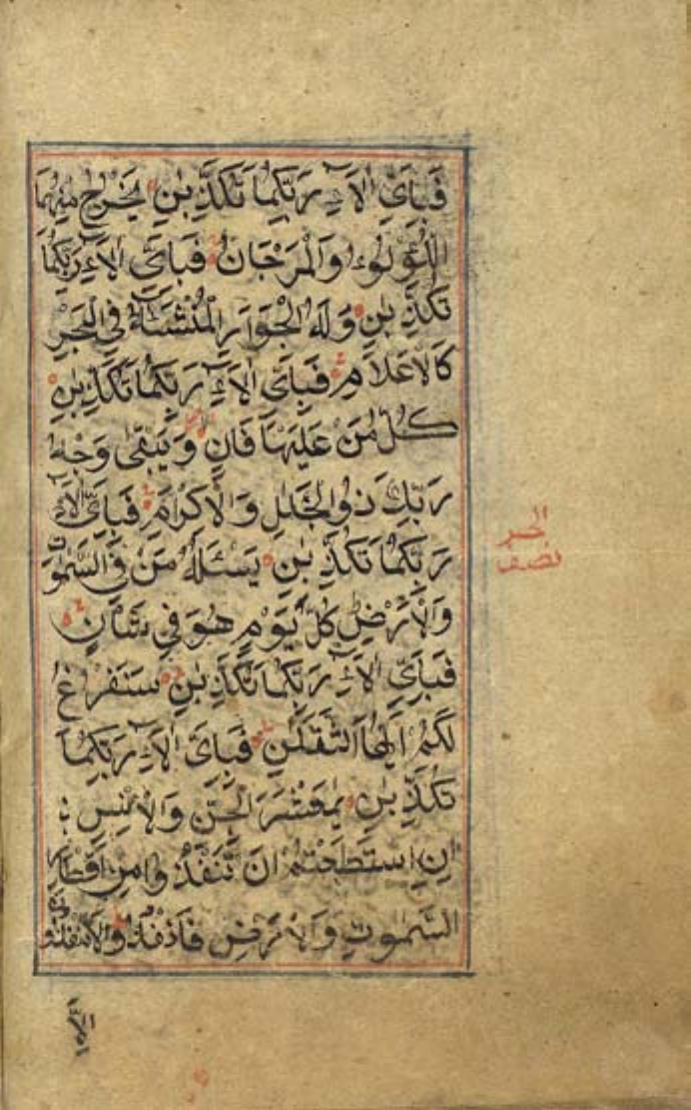 فَبِاَيِّ اٰلَآءِ رَبِّكُمَا تُكَذِّبٰنِ يَخْرُجُ مِنْهُمَا
اللُّؤْلُؤُ وَالْمَرْجَانُ فَبِاَيِّ اٰلَآءِ رَبِّكُمَا
تُكَذِّبٰنِ وَلَهُ الْجَوَارِ الْمُنْشَئٰتُ فِي الْبَحْرِ
كَالْاَعْلَامِ فَبِاَيِّ اٰلَآءِ رَبِّكُمَا تُكَذِّبٰنِ
كُلُّ مَنْ عَلَيْهَا فَانٍ وَيَبْقٰى وَجْهُ
رَبِّكَ ذُو الْجَلٰلِ وَالْاِكْرَامِ فَبِاَيِّ اٰلَآءِ
رَبِّكُمَا تُكَذِّبٰنِ يَسْئَلُهُ مَنْ فِي السَّمٰوٰتِ
وَالْاَرْضِ كُلَّ يَوْمٍ هُوَ فِي شَاْنٍ
فَبِاَيِّ اٰلَآءِ رَبِّكُمَا تُكَذِّبٰنِ سَنَفْرُغُ
لَكُمْ اَيُّهَا الثَّقَلٰنِ فَبِاَيِّ اٰلَآءِ رَبِّكُمَا
تُكَذِّبٰنِ يٰمَعْشَرَ الْجِنِّ وَالْاِنْسِ
اِنِ اسْتَطَعْتُمْ اَنْ تَنْفُذُوا مِنْ اَقْطَارِ
السَّمٰوٰتِ وَالْاَرْضِ فَانْفُذُوا لَا تَنْفُذُونَ
نصف
اِلَّا